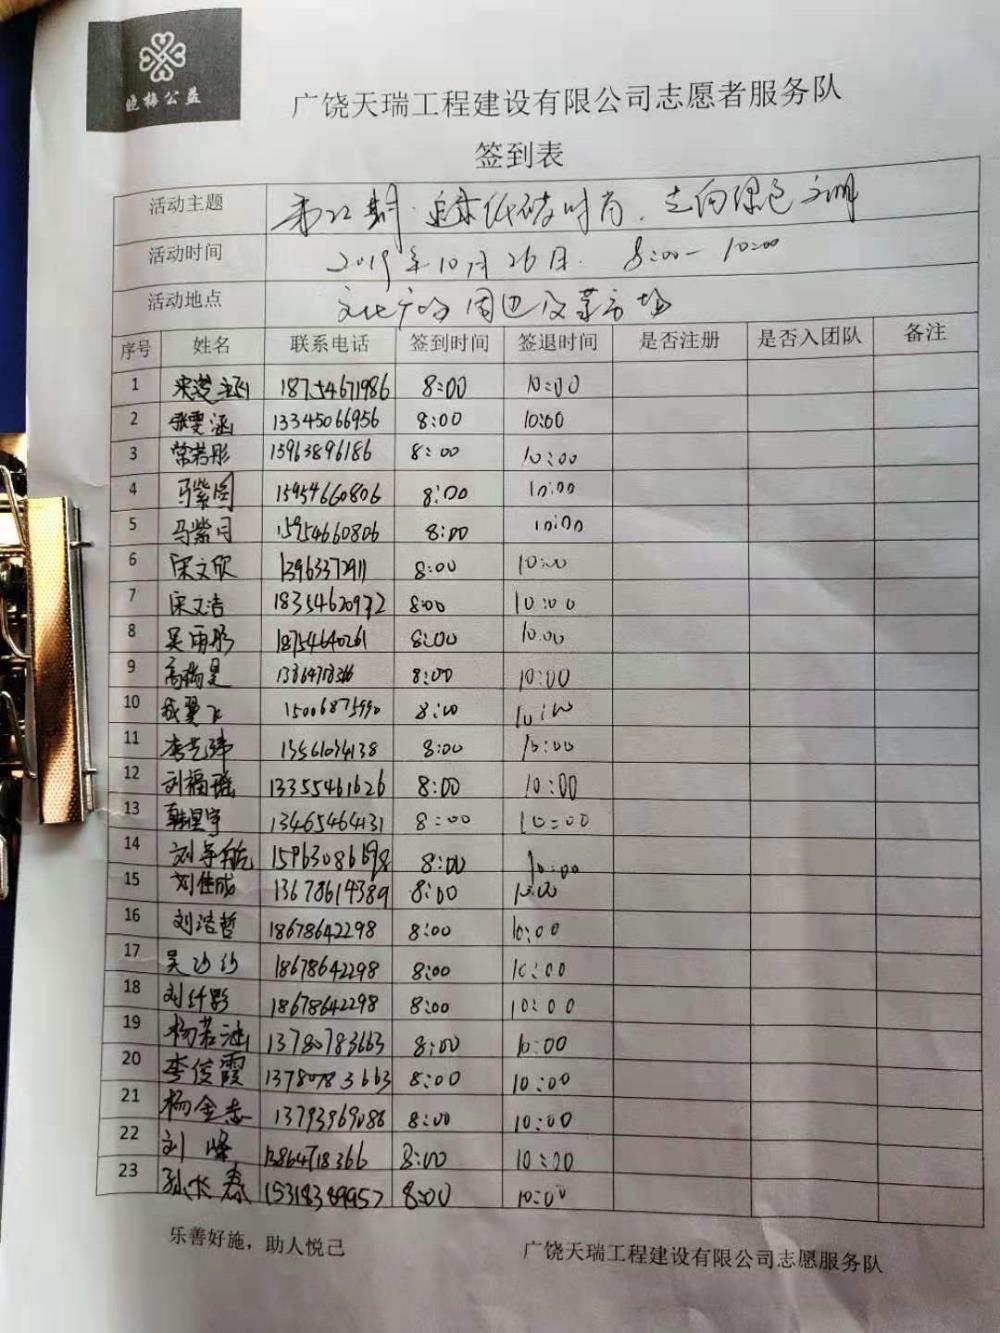 晓梅公益
广饶天瑞工程建设有限公司志愿者服务队
签到表
活动主题 第22期·追求低碳时尚、走向绿色文明
活动时间 2019年10月26日 8:00—10:00
活动地点 文化广场周边及菜市场
序号 姓名 联系电话 签到时间 签退时间 是否注册 是否入团队 备注
1 18754671986 8:00 10:00
2 张雯涵 13345066956 8:00 10:00
3 常若彤 13963896186 8:00 10:00
4 马紫 15954660806 8:00 10:00
5 马紫 15954660806 8:00 10:00
6 宋文欣 13963372911 8:00 10:00
7 宋文洁 18354620972 8:00 10:00
8 吴雨彤 18754640261 8:00 10:00
9 高瑞昊 8:00 10:00
10 翼飞 15006875990 8:00 10:00
11 李艺玮 13561034138 8:00 10:00
12 刘福瑶 13355461626 8:00 10:00
13 韩星宇 13465464131 8:00 10:00
14 刘宇航 8:00 10:00
15 刘佳成 13678614389 8:00 10:00
16 刘浩哲 18678642298 8:00 10:00
17 吴沙沙 18678642298 8:00 10:00
18 刘纤影 18678642298 8:00 10:00
19 杨若涵 13780783663 8:00 10:00
20 李俊霞 13780783663 8:00 10:00
21 杨金志 13793969086 8:00 10:00
22 刘峰 13864718366 8:00 10:00
23 孙长春 15318389957 8:00 10:00
乐善好施，助人悦己 广饶天瑞工程建设有限公司志愿服务队